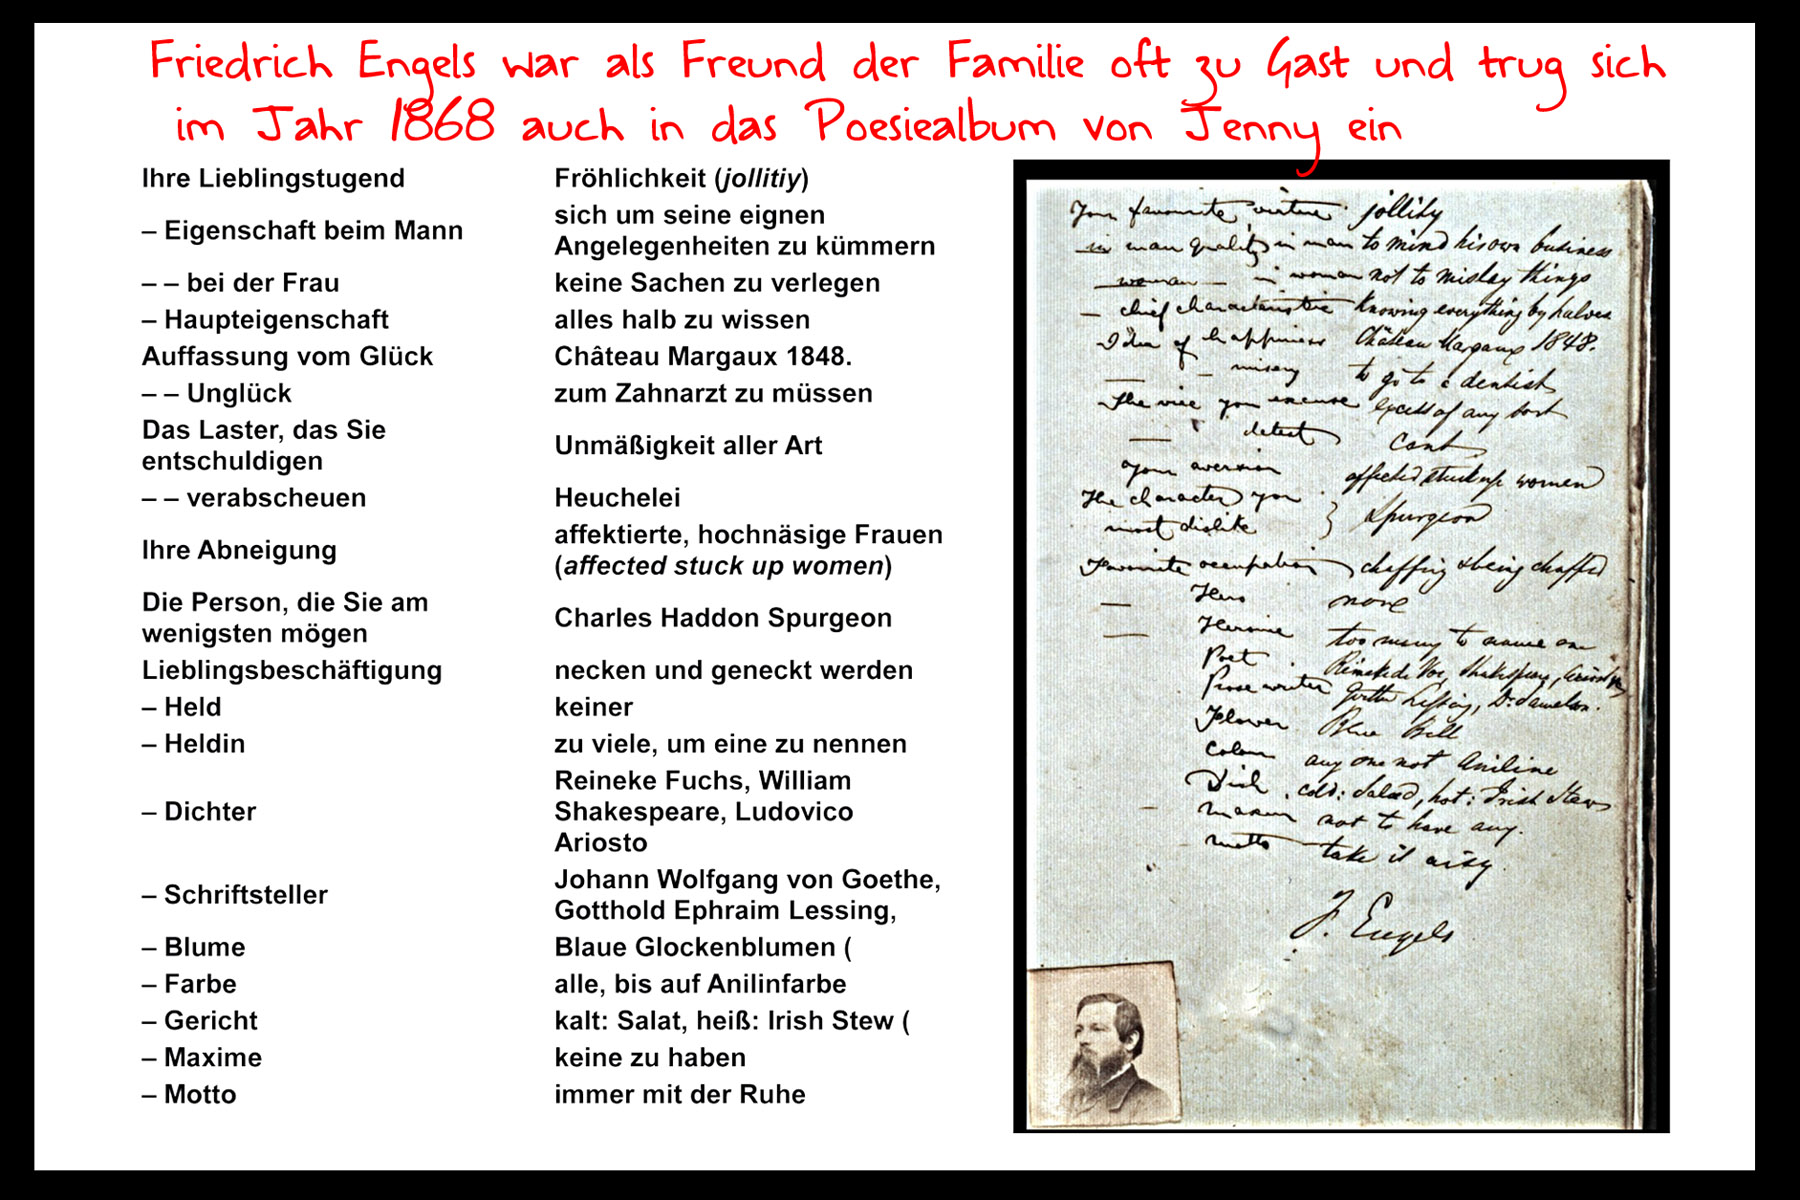 Friedrich Engels war als Freund der Familie oft zu Gast und trug sich
im Jahr 1868 auch in das Poesiealbum von Jenny ein
Ihre Lieblingstugend Fröhlichkeit (jollitiy)
– Eigenschaft beim Mann sich um seine eignen
Angelegenheiten zu kümmern
– – bei der Frau keine Sachen zu verlegen
– Haupteigenschaft alles halb zu wissen
Auffassung vom Glück Château Margaux 1848.
– – Unglück zum Zahnarzt zu müssen
Das Laster, das Sie
entschuldigen Unmäßigkeit aller Art
– – verabscheuen Heuchelei
Ihre Abneigung affektierte, hochnäsige Frauen
(affected stuck up women)
Die Person, die Sie am
wenigsten mögen Charles Haddon Spurgeon
Lieblingsbeschäftigung necken und geneckt werden
– Held keiner
– Heldin zu viele, um eine zu nennen
– Dichter Reineke Fuchs, William
Shakespeare, Ludovico
Ariosto
– Schriftsteller Johann Wolfgang von Goethe,
Gotthold Ephraim Lessing,
– Blume Blaue Glockenblumen (
– Farbe alle, bis auf Anilinfarbe
– Gericht kalt: Salat, heiß: Irish Stew (
– Maxime keine zu haben
– Motto immer mit der Ruhe
Your favourite virtue jollity
quality in man to mind his own business
– in woman not to mislay things
– chief characteristic knowing everything by halves
Idea of happiness Château Margaux 1848.
– – misery to go to a dentist
The vice you excuse excess of any sort
– detest Cant
Your aversion affected stuck up women
The character you
most dislike } Spurgeon
Favourite occupation chaffing & being chaffed
– Hero none
– Heroine too many to name one
Poet Reineke de Vos, Shakespeare,
Prose writer Goethe Lessing, Dr Samelson.
Flower Blue Bell
Colour any one not Aniline
Dish cold: Salad, hot: Irish Stew
– Maxim not to have any.
Motto take it aisy.
F. Engels